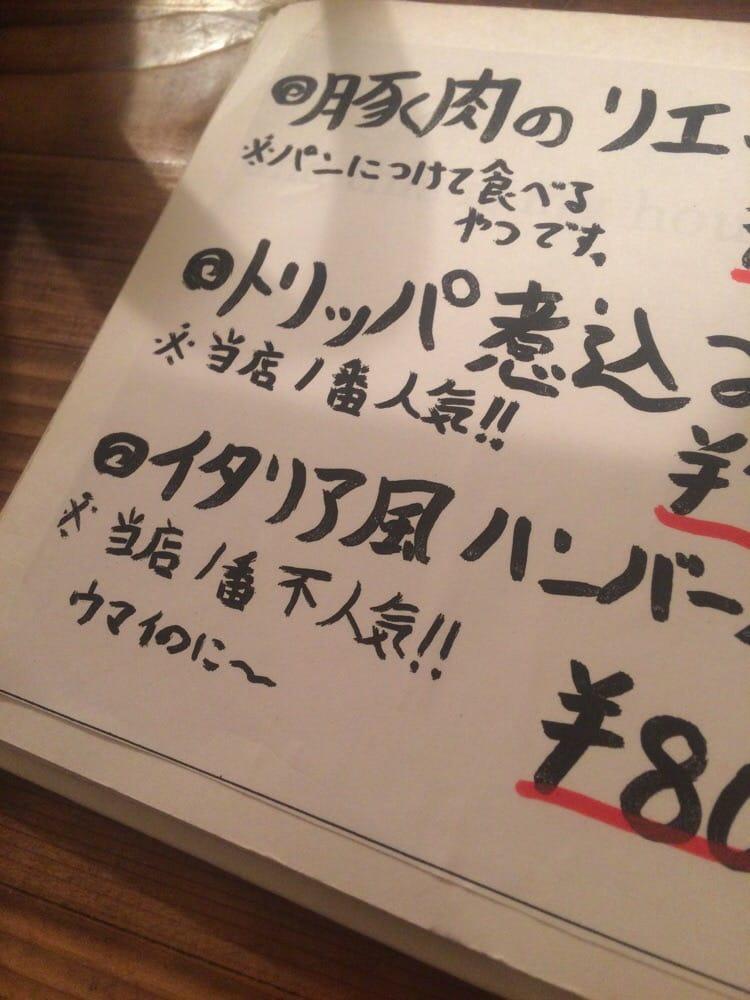 豚肉のリエ
※パンにつけて食べる
やつです。
トリッパ煮込
※当店1番人気!!
¥
イタリア風ハンバー
※当店1番不人気!!
ウマイのに〜
¥80